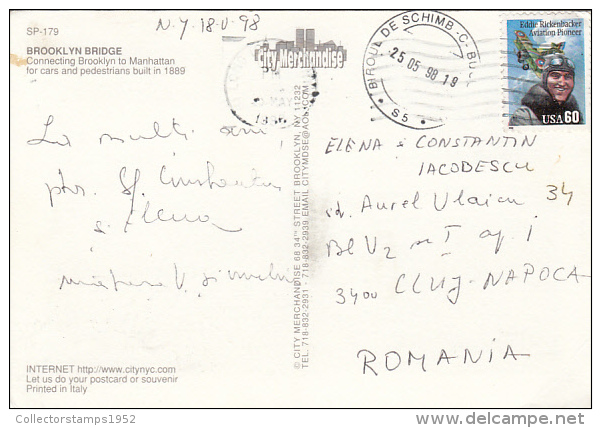 SP-179
N.Y 18-V-98
BROOKLYN BRIDGE
Connecting Brooklyn to Manhattan
for cars and pedestrians built in 1889
City Merchandise
BIROUL DE SCHIMB
25 05 98 18
S5
Eddie Rickenbacker
Aviation Pioneer
USA 60
La mulți ani,
ptr. Sf. Constantin
și Elena
© CITY MERCHANDISE 68 34TH STREET BROOKLYN, NY 11232
TEL. 718-832-2931 718-832-2939 EMAIL CITYMDSE@AOL.COM
ELENA & CONSTANTIN
IACOBESCU
str. Aurel Vlaicu 34
Bl V2 sc I ap. 1
3400 CLUJ-NAPOCA
ROMANIA
INTERNET http://www.citynyc.com
Let us do your postcard or souvenir
Printed in Italy
Collectorstamps1952
delcampe.net